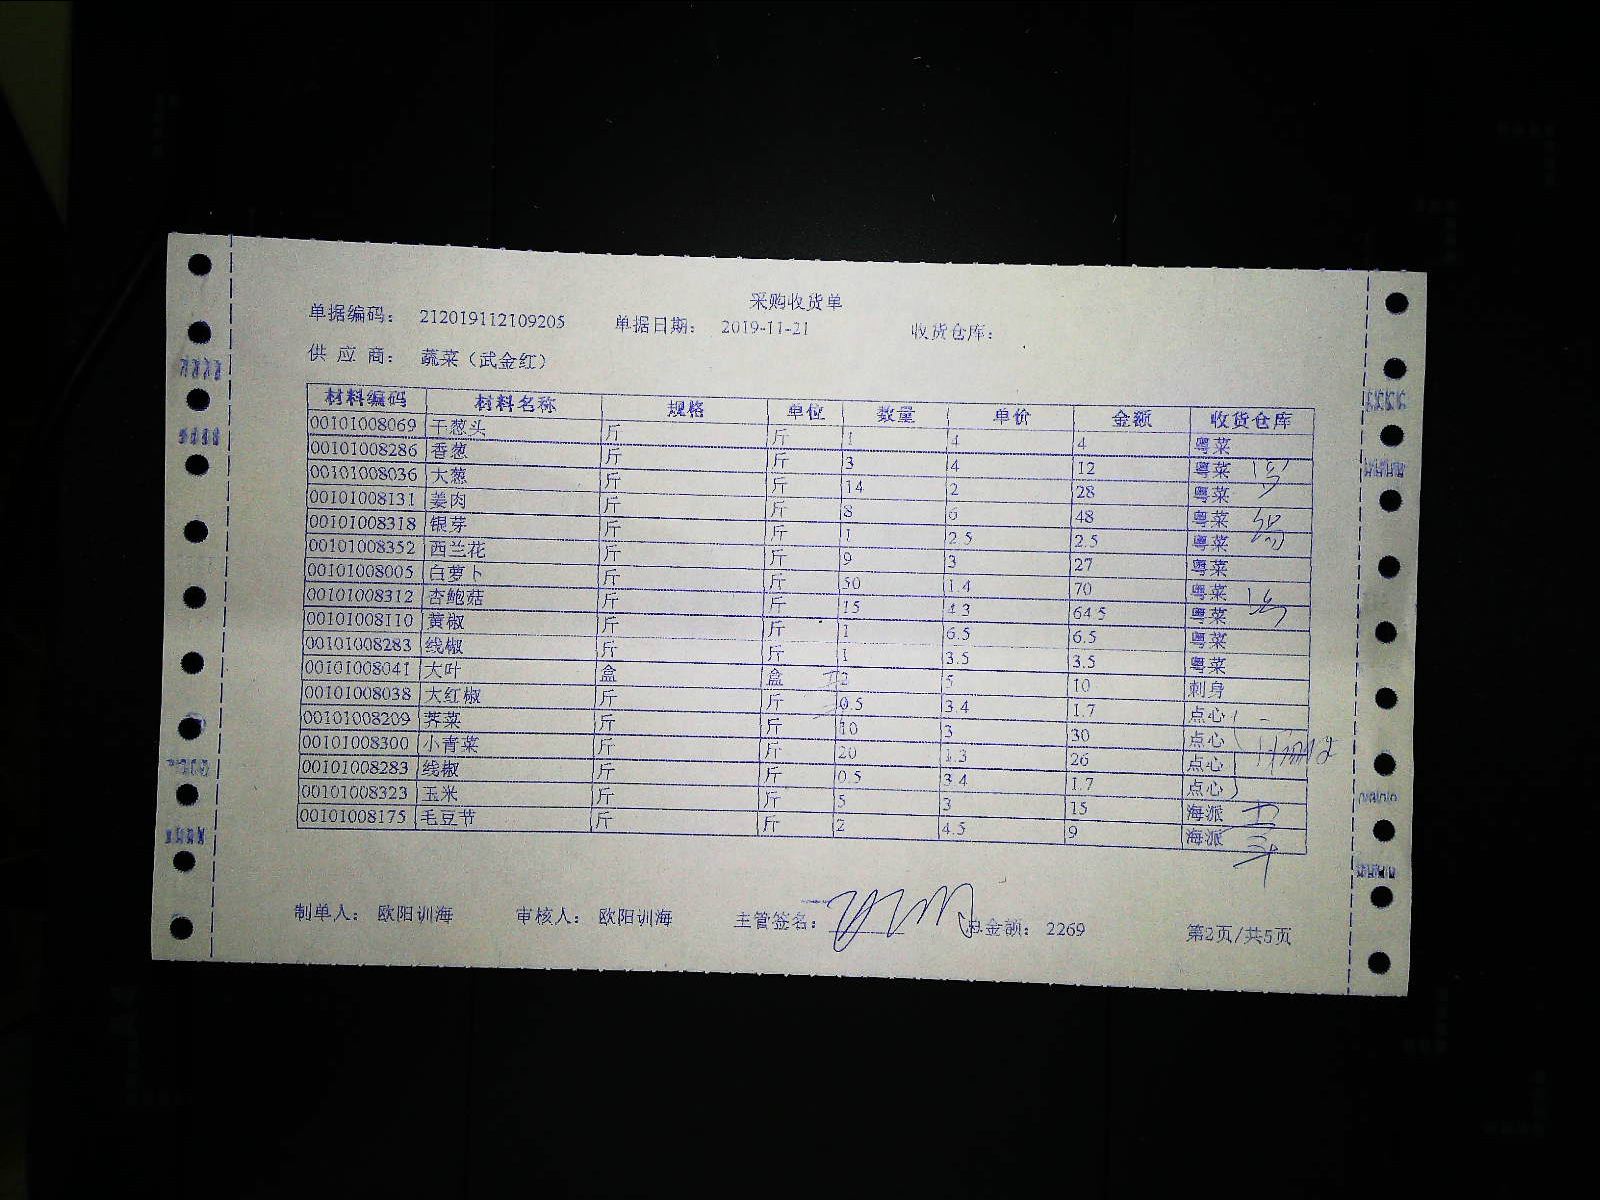 采购收货单
单据编码： 212019112109205 单据日期： 2019-11-21 收货仓库：
供 应 商： 蔬菜（武金红）
材料编码 材料名称 规格 单位 数量 单价 金额 收货仓库
00101008069 干葱头 斤 斤 1 4 4 粤菜
00101008286 香葱 斤 斤 3 4 12 粤菜
00101008036 大葱 斤 斤 14 2 28 粤菜
00101008131 姜肉 斤 斤 8 6 48 粤菜
00101008318 银芽 斤 斤 1 2.5 2.5 粤菜
00101008352 西兰花 斤 斤 9 3 27 粤菜
00101008005 白萝卜 斤 斤 50 1.4 70 粤菜
00101008312 杏鲍菇 斤 斤 15 4.3 64.5 粤菜
00101008110 黄椒 斤 斤 1 6.5 6.5 粤菜
00101008283 线椒 斤 斤 1 3.5 3.5 粤菜
00101008041 大叶 盒 盒 2 5 10 刺身
00101008038 大红椒 斤 斤 0.5 3.4 1.7 点心
00101008209 荠菜 斤 斤 10 3 30 点心
00101008300 小青菜 斤 斤 20 1.3 26 点心
00101008283 线椒 斤 斤 0.5 3.4 1.7 点心
00101008323 玉米 斤 斤 5 3 15 海派
00101008175 毛豆节 斤 斤 2 4.5 9 海派
制单人： 欧阳训海 审核人： 欧阳训海 主管签名： 总金额： 2269 第2页/共5页